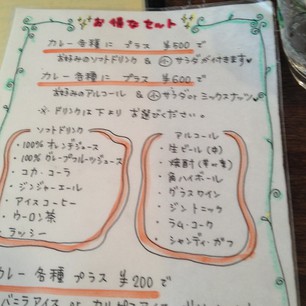 お得なセット
カレー各種に プラス ¥500で
お好みのソフトドリンク & 小サラダが付きます♡
カレー各種に プラス ¥600で
お好みのアルコール & 小サラダor ミックスナッツ♡
※ドリンクは下より お選びください。
ソフトドリンク
・100% オレンジジュース
・100% グレープフルーツジュース
・コカ・コーラ
・ジンジャーエール
・アイスコーヒー
・ウーロン茶
・ラッシー
アルコール
・生ビール(中)
・焼酎(芋or麦)
・角ハイボール
・グラスワイン
・ジントニック
・ラム・コーク
・シャンディ・ガフ
カレー各種 プラス ¥200で
バニラアイス or